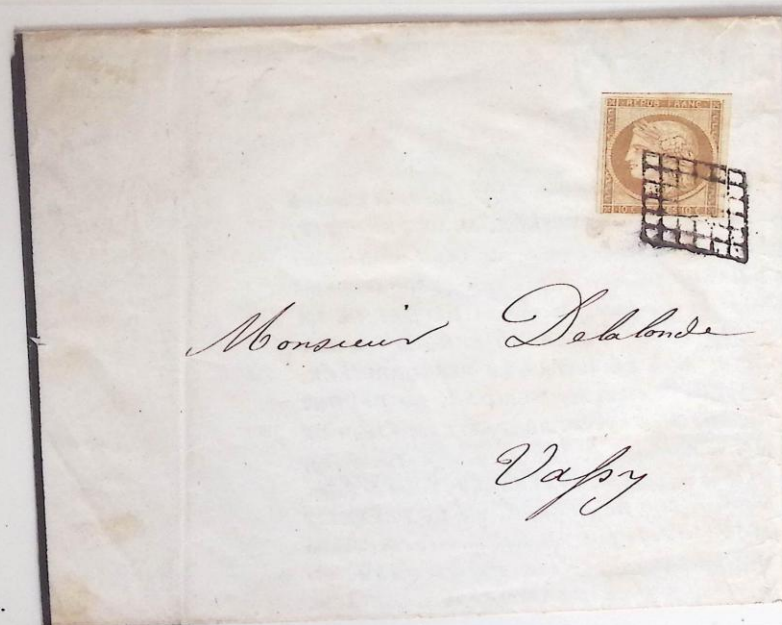 REPUB. FRANC.
10 C. 10 C.
Monsieur Delalonde
Vassy